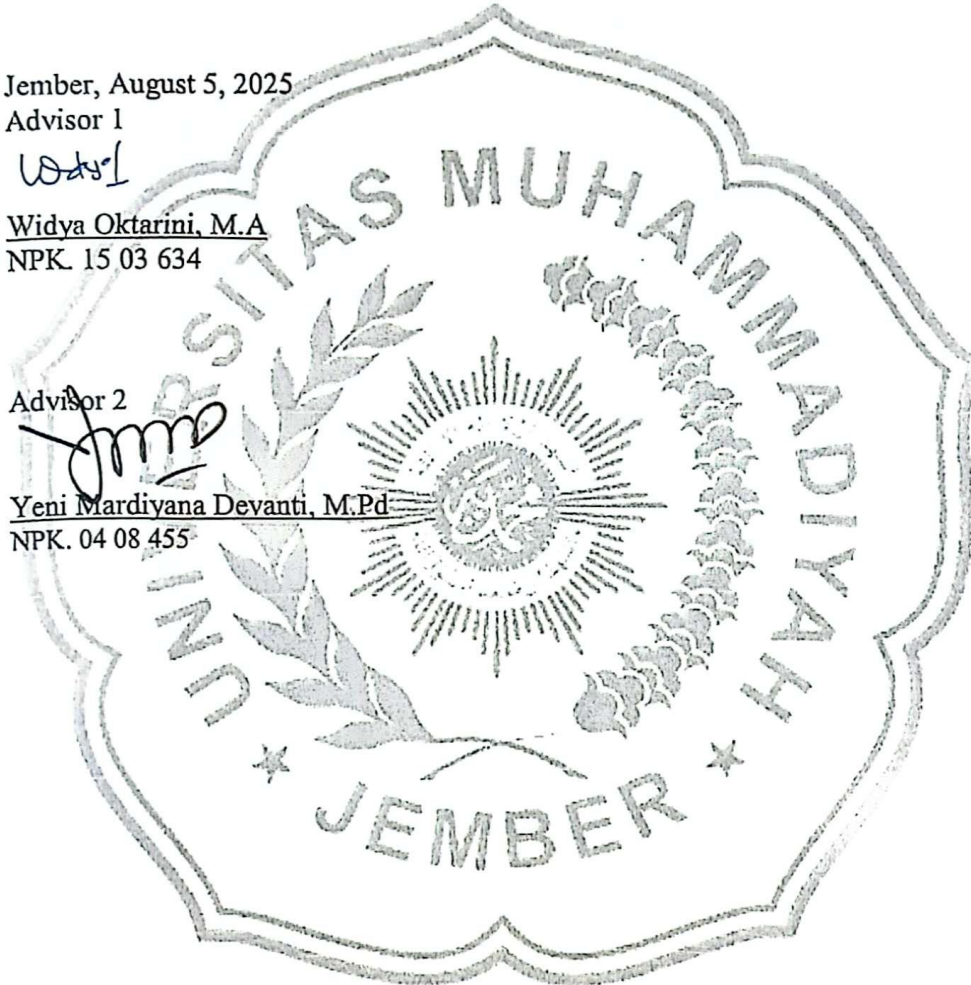 Jember, August 5, 2025
Advisor 1
Widya Oktarini, M.A
NPK. 15 03 634
Advisor 2
Yeni Mardiyana Devanti, M.Pd
NPK. 04 08 455
UNIVERSITAS MUHAMMADIYAH
JEMBER